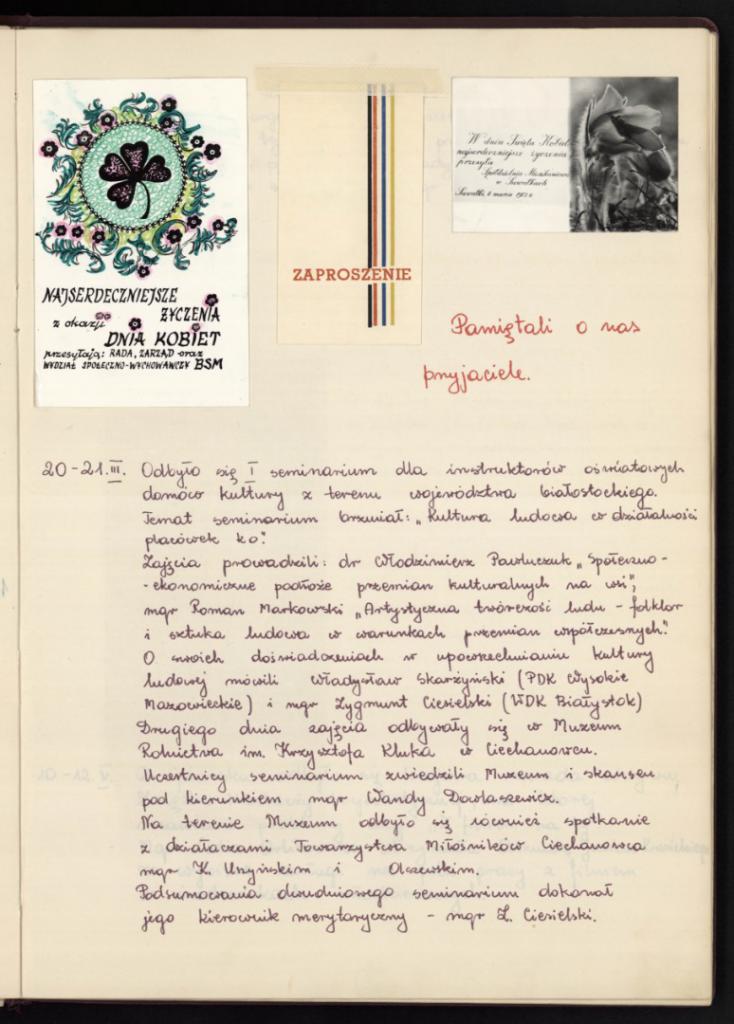 NAJSERDECZNIEJSZE
ŻYCZENIA
z okazji
DNIA KOBIET
przesyłają: RADA, ZARZĄD oraz
WYDZIAŁ SPOŁECZNO-WYCHOWAWCZY BSM
ZAPROSZENIE
W dniu Święta Kobiet
najserdeczniejsze życzenia
przesyła
Spółdzielnia Mieszkaniowa
w Suwałkach
Suwałki, 8 marca
Pamiętali o nas
przyjaciele.
20-21.III. Odbyło się I seminarium dla instruktorów oświatowych
domów kultury z terenu województwa białostockiego.
Temat seminarium brzmiał: „Kultura ludowa w działalności
placówek ko".
Zajęcia prowadzili: dr Włodzimierz Pawluczuk „Społeczno-
-ekonomiczne podłoże przemian kulturalnych na wsi",
mgr Roman Markowski „Artystyczna twórczość ludu - folklor
i sztuka ludowa w warunkach przemian współczesnych."
O swoich doświadczeniach w upowszechnianiu kultury
ludowej mówili Władysław Skarżyński (PDK Wysokie
Mazowieckie) i mgr Zygmunt Ciesielski (WDK Białystok)
Drugiego dnia zajęcia odbywały się w Muzeum
Rolnictwa im. Krzysztofa Kluka w Ciechanowcu.
Uczestnicy seminarium zwiedzili Muzeum i skansen
pod kierunkiem mgr Wandy Dawlaszewicz.
Na terenie Muzeum odbyło się również spotkanie
z działaczami Towarzystwa Miłośników Ciechanowca
mgr K. Uszyńskim i Olszewskim.
Podsumowania dwudniowego seminarium dokonał
jego kierownik merytaryczny - mgr Z. Ciesielski.